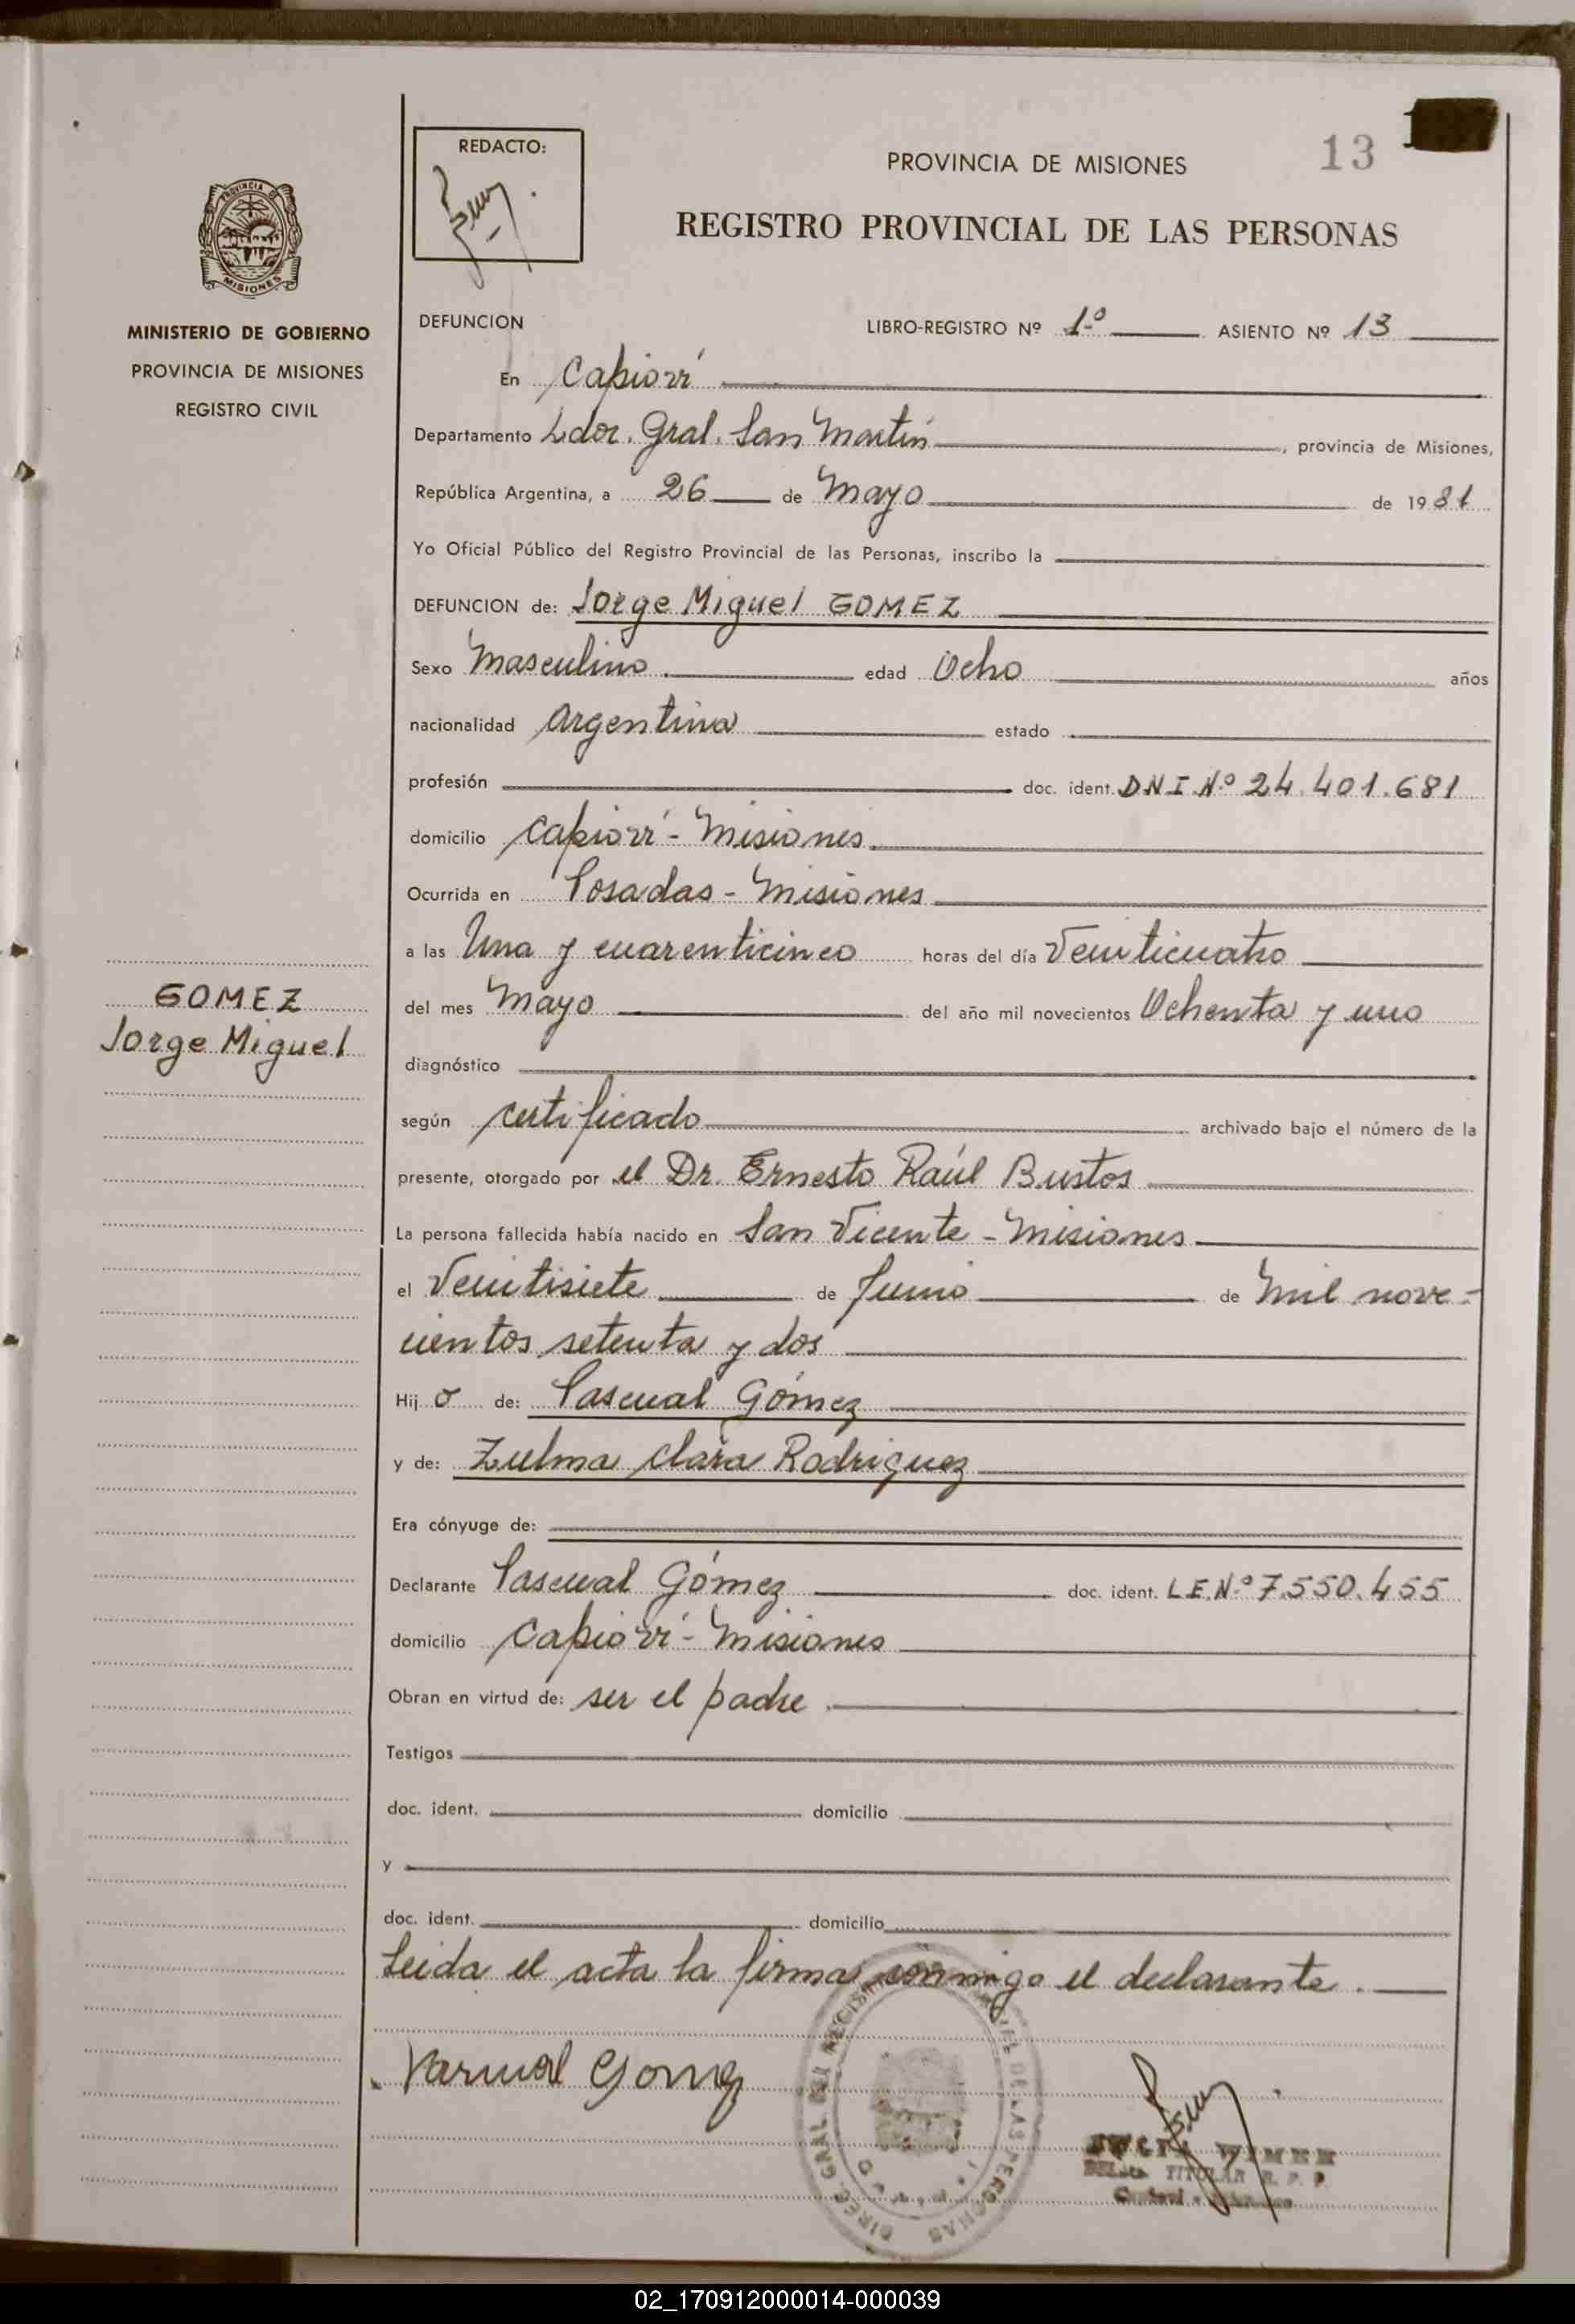 REDACTO:
PROVINCIA DE MISIONES
13
REGISTRO PROVINCIAL DE LAS PERSONAS
PROVINCIA DE
MISIONES
MINISTERIO DE GOBIERNO
PROVINCIA DE MISIONES
REGISTRO CIVIL
DEFUNCION LIBRO-REGISTRO Nº 1º ASIENTO Nº 13
En Capioví
Departamento Ldor. Gral. San Martín, provincia de Misiones,
República Argentina, a 26 de Mayo de 1981
Yo Oficial Público del Registro Provincial de las Personas, inscribo la
DEFUNCION de: Jorge Miguel GOMEZ
Sexo Masculino edad Ocho años
nacionalidad Argentina estado
profesión doc. ident. DNI Nº 24.401.681
domicilio Capioví - Misiones
Ocurrida en Posadas - Misiones
a las Una y cuarenticinco horas del día Veinticuatro
del mes Mayo del año mil novecientos Ochenta y uno
GOMEZ
Jorge Miguel
diagnóstico
según certificado archivado bajo el número de la
presente, otorgado por el Dr. Ernesto Raúl Bustos
La persona fallecida había nacido en San Vicente - Misiones
el Veintisiete de Junio de Mil nove-
cientos setenta y dos
Hij o de: Pascual Gómez
y de: Zulma Clara Rodriguez
Era cónyuge de:
Declarante Pascual Gómez doc. ident. L.E.Nº 7.550.455
domicilio Capioví - Misiones
Obran en virtud de: ser el padre
Testigos
doc. ident. domicilio
y
doc. ident. domicilio
Leida el acta la firma conmigo el declarante.
Pascual Gomez
DIREC. GRAL DEL REGISTRO DE LAS PERSONAS
TITULAR R. P. P.
02_170912000014-000039